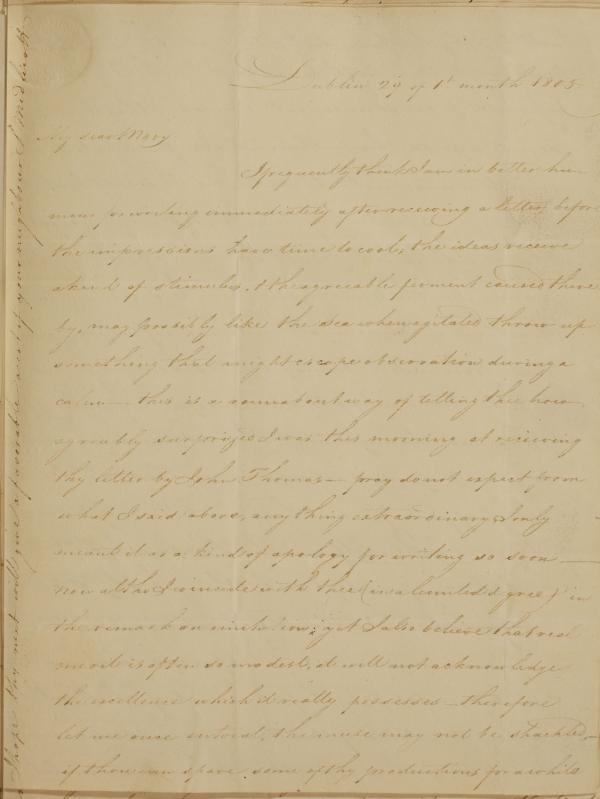 Dublin 29 of 1st month 1805
My dear Mary
I frequently think I am in better hu-
mour for writing immediately after receiving a letter, before
the impressions have time to cool, the ideas receive
a kind of stimulus, & the agreeable ferment caused there
by, may possibly like the sea when agitated throw up
something that might escape observation during a
calm — this is a roundabout way of telling thee how
agreeably surprized I was this morning at receiving
thy letter by John Thomas — pray do not expect from
what I said above, any thing extraordinary, I only
meant it as a kind of apology for writing so soon —
now altho I coincide with thee (in a limited degree) in
the remark on imitation; yet I also believe that real
merit is often so modest, it will not acknowledge
the excellence which it really possesses — therefore
let me once entreat, the muse may not be shackled, —
if thou can spare some of thy productions for a while
I hope thy next will give a favorable acct of your neighbour S